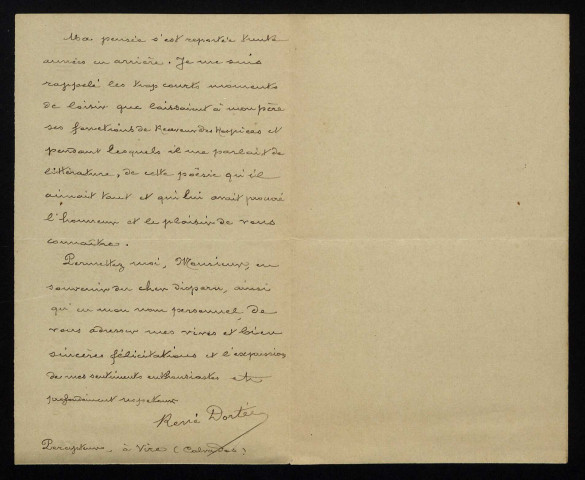 Ma pensée s'est reportée trente
années en arrière. Je me suis
rappelé les trop courts moments
de loisir que laissaient à mon père
ses fonctions de Receveur des Hospices et
pendant lesquels il me parlait de
littérature, de cette poésie qu'il
aimait tant et qui lui avait procuré
l'honneur et le plaisir de vous
connaître.
Permettez moi, Monsieur, en
souvenir du cher disparu, ainsi
qu'en mon nom personnel, de
vous adresser mes vives et bien
sincères félicitations et l'expression
de mes sentiments enthousiastes et
profondément respectueux
René
Percepteur à Vire (Calvados)